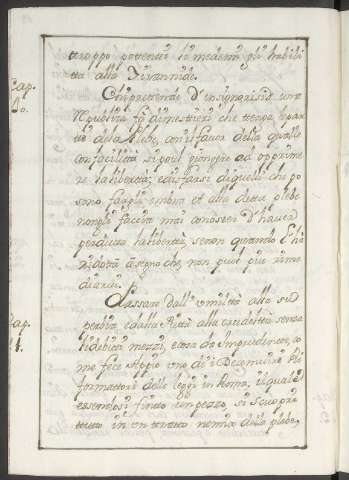 troppo potente in medemi gli habili-
ta alla Tirannide.
Cap.
40.
Chi pretende d'insignorirsi d'una
Republica fà di mestieri che tenga il parti-
to della Plebe, con il favor della quale
con facilità si può giongere ad opprime-
re la libertà, e disfarsi di quelli che po-
sono fargli ombra et alla detta plebe
non gli faccia mai conoscer d'haver
perduta la libertà se non quando l'hà
ridotta a segno che non può più rime-
diarsi.
Cap.
41.
Passare dall'umiltà alla su-
perbia, e dalla Pietà alla crudeltà senza
habiti mezzi, è cosa da Imprudente, co-
me fece Appio uno de i Decemviri Ri-
formattori delle leggi in Roma, il quale
essendosi finto un pezzo si scuopre
tutto in un tratto nemico della plebe,